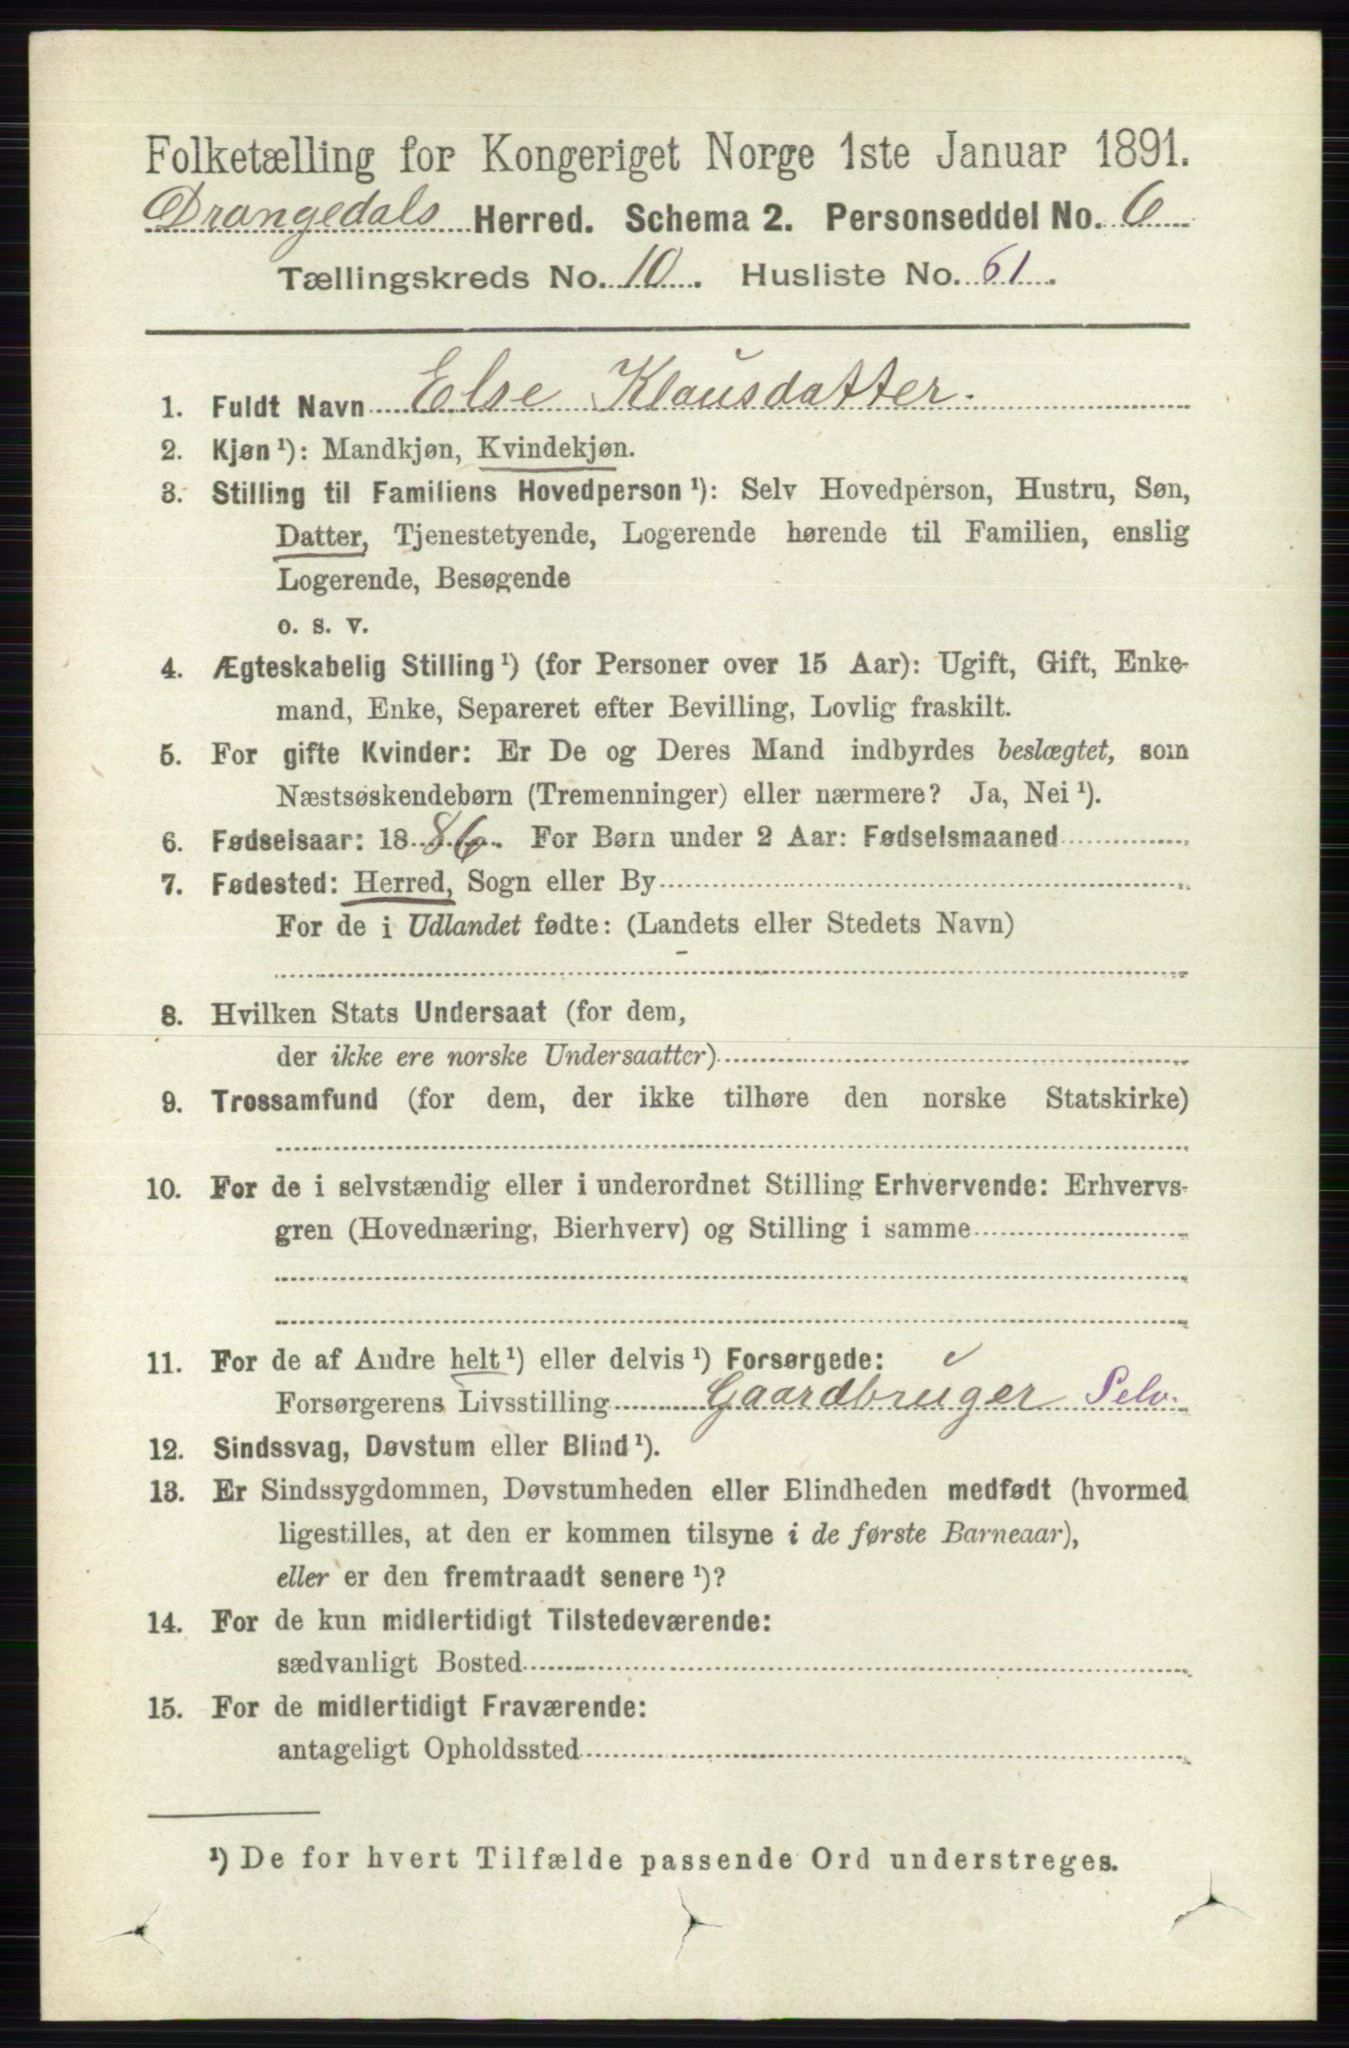 Folketælling for Kongeriget Norge 1ste Januar 1891.
Drangedals Herred. Schema 2. Personseddel No. 6
Tællingskreds No. 10. Husliste No. 61.
1. Fuldt Navn Else Klausdatter.
2. Kjøn¹): Mandkjøn, Kvindekjøn.
3. Stilling til Familiens Hovedperson¹): Selv Hovedperson, Hustru, Søn,
Datter, Tjenestetyende, Logerende hørende til Familien, enslig
Logerende, Besøgende
o. s. v.
4. Ægteskabelig Stilling¹) (for Personer over 15 Aar): Ugift, Gift, Enke-
mand, Enke, Separeret efter Bevilling, Lovlig fraskilt.
5. For gifte Kvinder: Er De og Deres Mand indbyrdes beslægtet, som
Næstsøskendebørn (Tremenninger) eller nærmere? Ja, Nei¹).
6. Fødselsaar: 1886. For Børn under 2 Aar: Fødselsmaaned
7. Fødested: Herred, Sogn eller By
For de i Udlandet fødte: (Landets eller Stedets Navn)
8. Hvilken Stats Undersaat (for dem,
der ikke ere norske Undersaatter)
9. Trossamfund (for dem, der ikke tilhøre den norske Statskirke)
10. For de i selvstændig eller i underordnet Stilling Erhvervende: Erhvervs-
gren (Hovednæring, Bierhverv) og Stilling i samme
11. For de af Andre helt¹) eller delvis¹) Forsørgede:
Forsørgerens Livsstilling Gaardbruger Selv.
12. Sindssvag, Døvstum eller Blind¹).
13. Er Sindssygdommen, Døvstumheden eller Blindheden medfødt (hvormed
ligestilles, at den er kommen tilsyne i de første Barneaar),
eller er den fremtraadt senere¹)?
14. For de kun midlertidigt Tilstedeværende:
sædvanligt Bosted
15. For de midlertidigt Fraværende:
antageligt Opholdssted
¹) De for hvert Tilfælde passende Ord understreges.